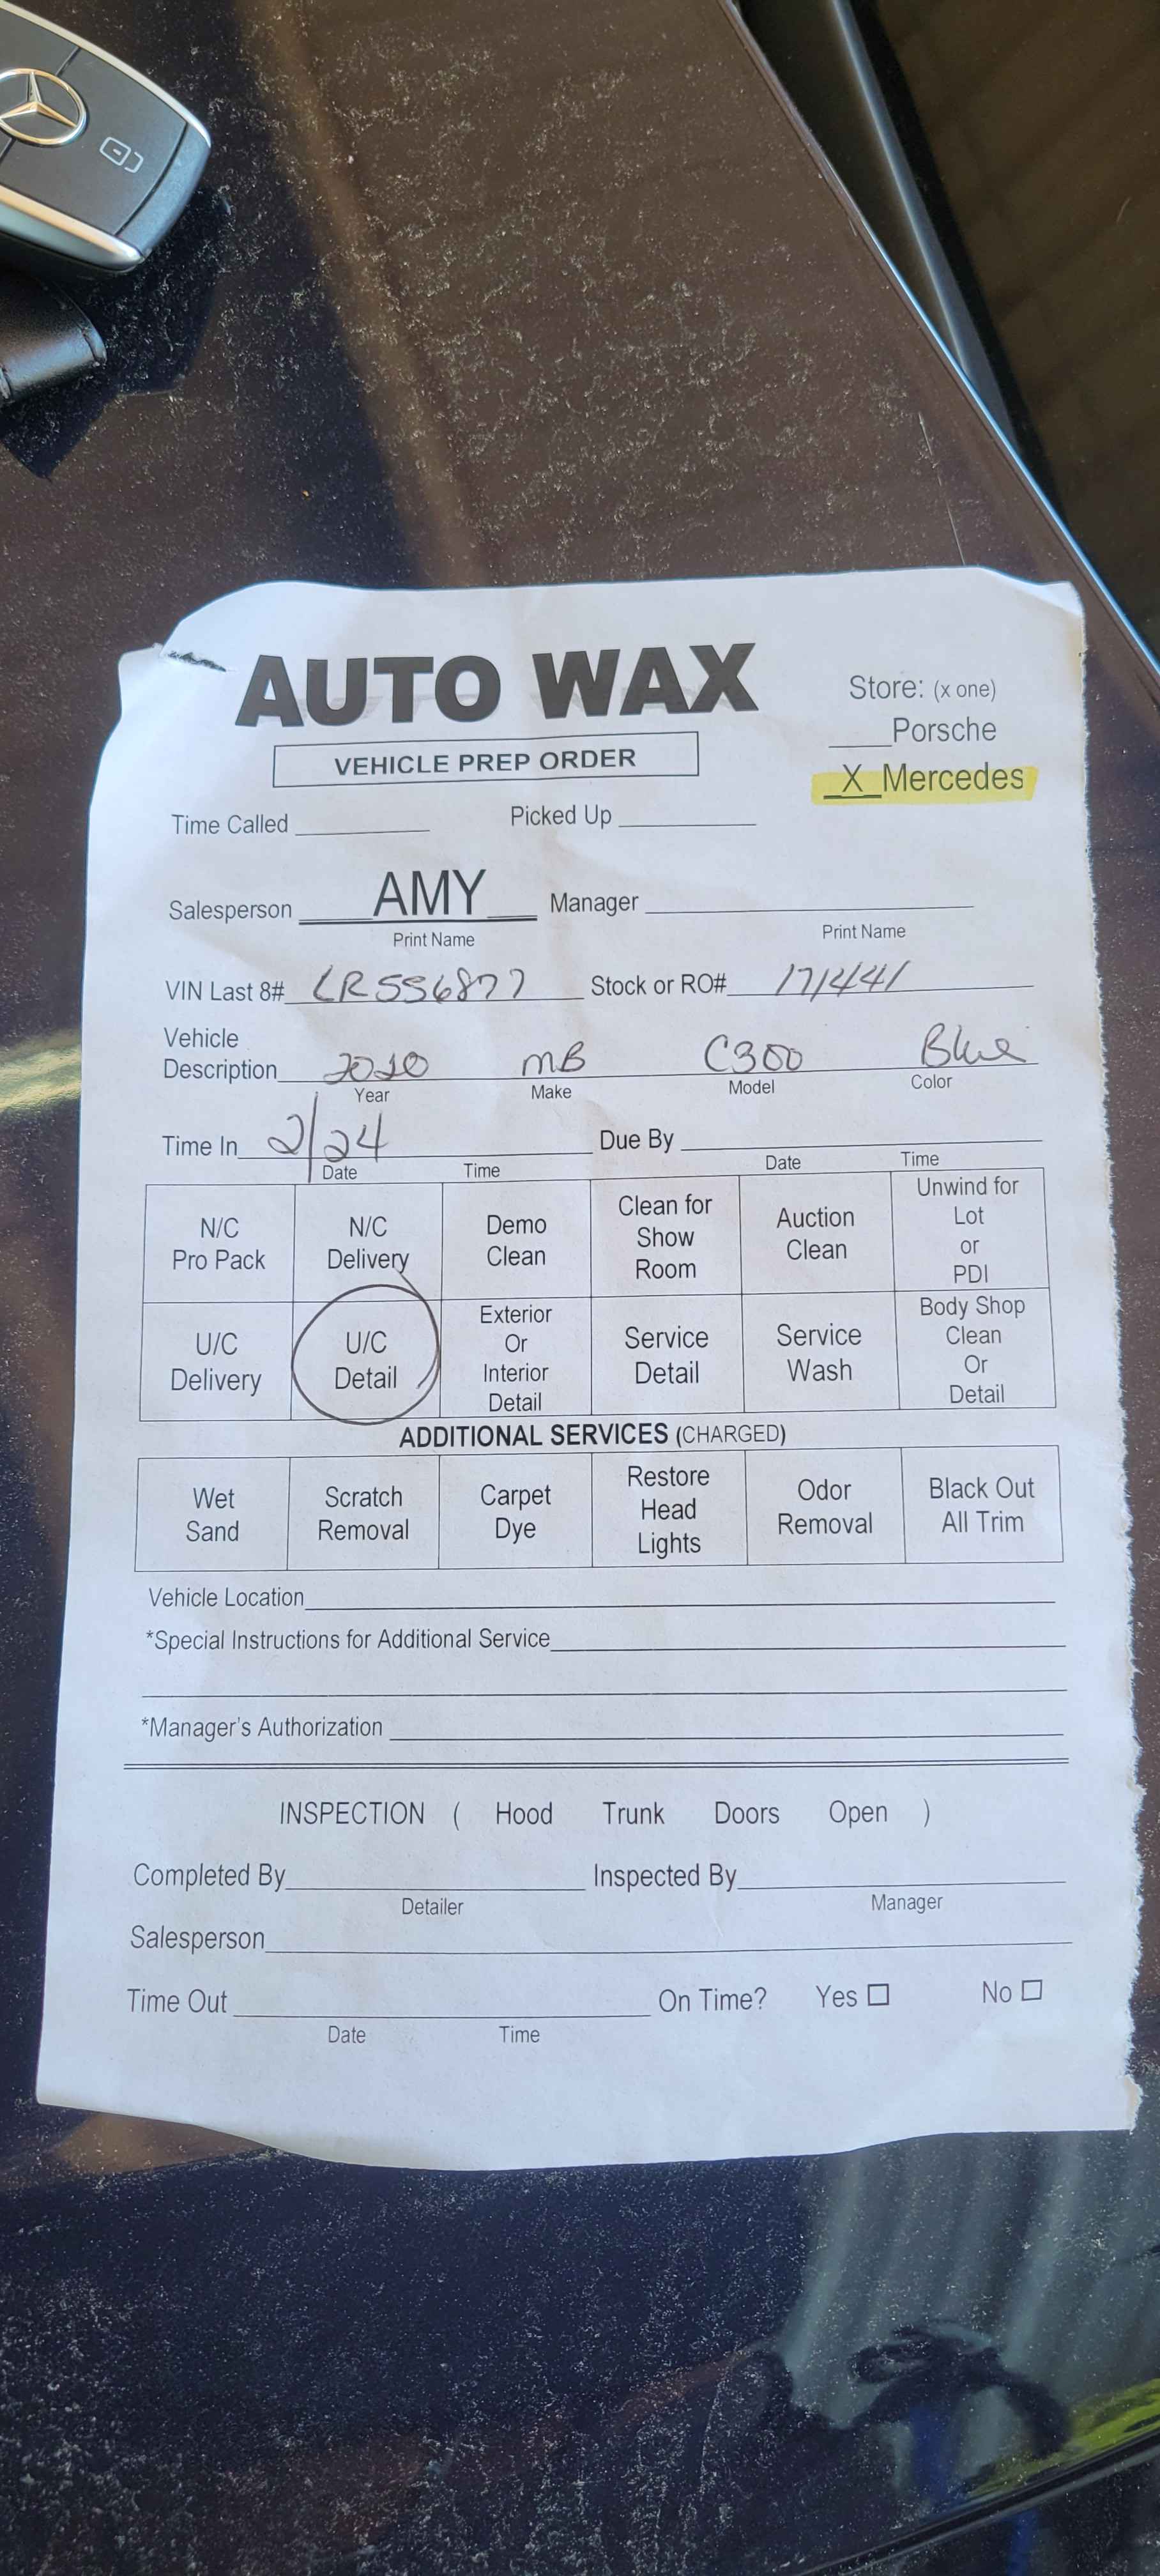 AUTO WAX
VEHICLE PREP ORDER
Store: (x one)
____Porsche
_X_Mercedes
Time Called __________ Picked Up __________
Salesperson ____AMY____ Manager ____________________
Print Name Print Name
VIN Last 8# LR556877 Stock or RO# 171441
Vehicle
Description 2020 MB C300 Blue
Year Make Model Color
Time In 2/24 Due By ____________________
Date Time Date Time
N/C Pro Pack N/C Delivery Demo Clean Clean for Show Room Auction Clean Unwind for Lot or PDI
U/C Delivery U/C Detail Exterior Or Interior Detail Service Detail Service Wash Body Shop Clean Or Detail
ADDITIONAL SERVICES (CHARGED)
Wet Sand Scratch Removal Carpet Dye Restore Head Lights Odor Removal Black Out All Trim
Vehicle Location____________________
*Special Instructions for Additional Service____________________
*Manager's Authorization ____________________
INSPECTION ( Hood Trunk Doors Open )
Completed By____________________ Inspected By____________________
Detailer Manager
Salesperson____________________
Time Out ____________________ On Time? Yes ☐ No ☐
Date Time